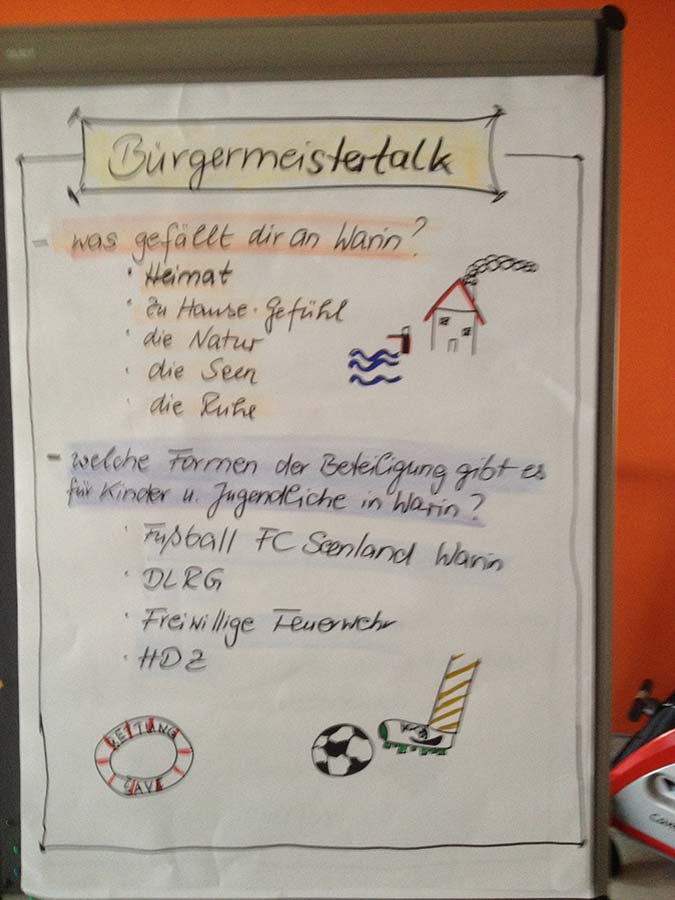 Bürgermeistertalk
- was gefällt dir an Warin?
• Heimat
• zu Hause-Gefühl
• die Natur
• die Seen
• die Ruhe
- welche Formen der Beteiligung gibt es
für Kinder u. Jugendliche in Warin?
• Fußball FC Seenland Warin
• DLRG
• Freiwillige Feuerwehr
• HDZ
RETTUNG